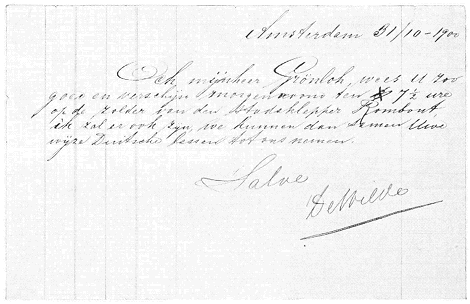 Amsterdam 31/10-1900
Och mijnheer Grönloh, wees U zoo
goed en verschijn morgenavond ten 7 ½ ure
op de zolder van den Stadsklepper Rombout
ik zal er ook zijn, we kunnen dan samen Uwe
wijze Duitsche lessen tot ons nemen.
Salve
DeWilde